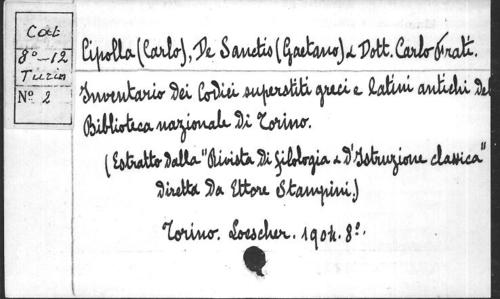 Cat
8º-12
Turin
Nº 2
Cipolla (Carlo), De Sanctis (Gaetano) & Dott. Carlo Frati.
Inventario dei Codici superstiti greci e latini antichi del
Biblioteca nazionale di Torino.
(Estratto dalla "Rivista di filologia & d'Istruzione classica"
diretta da Ettore Stampini.)
Torino. Loescher. 1904. 8º.